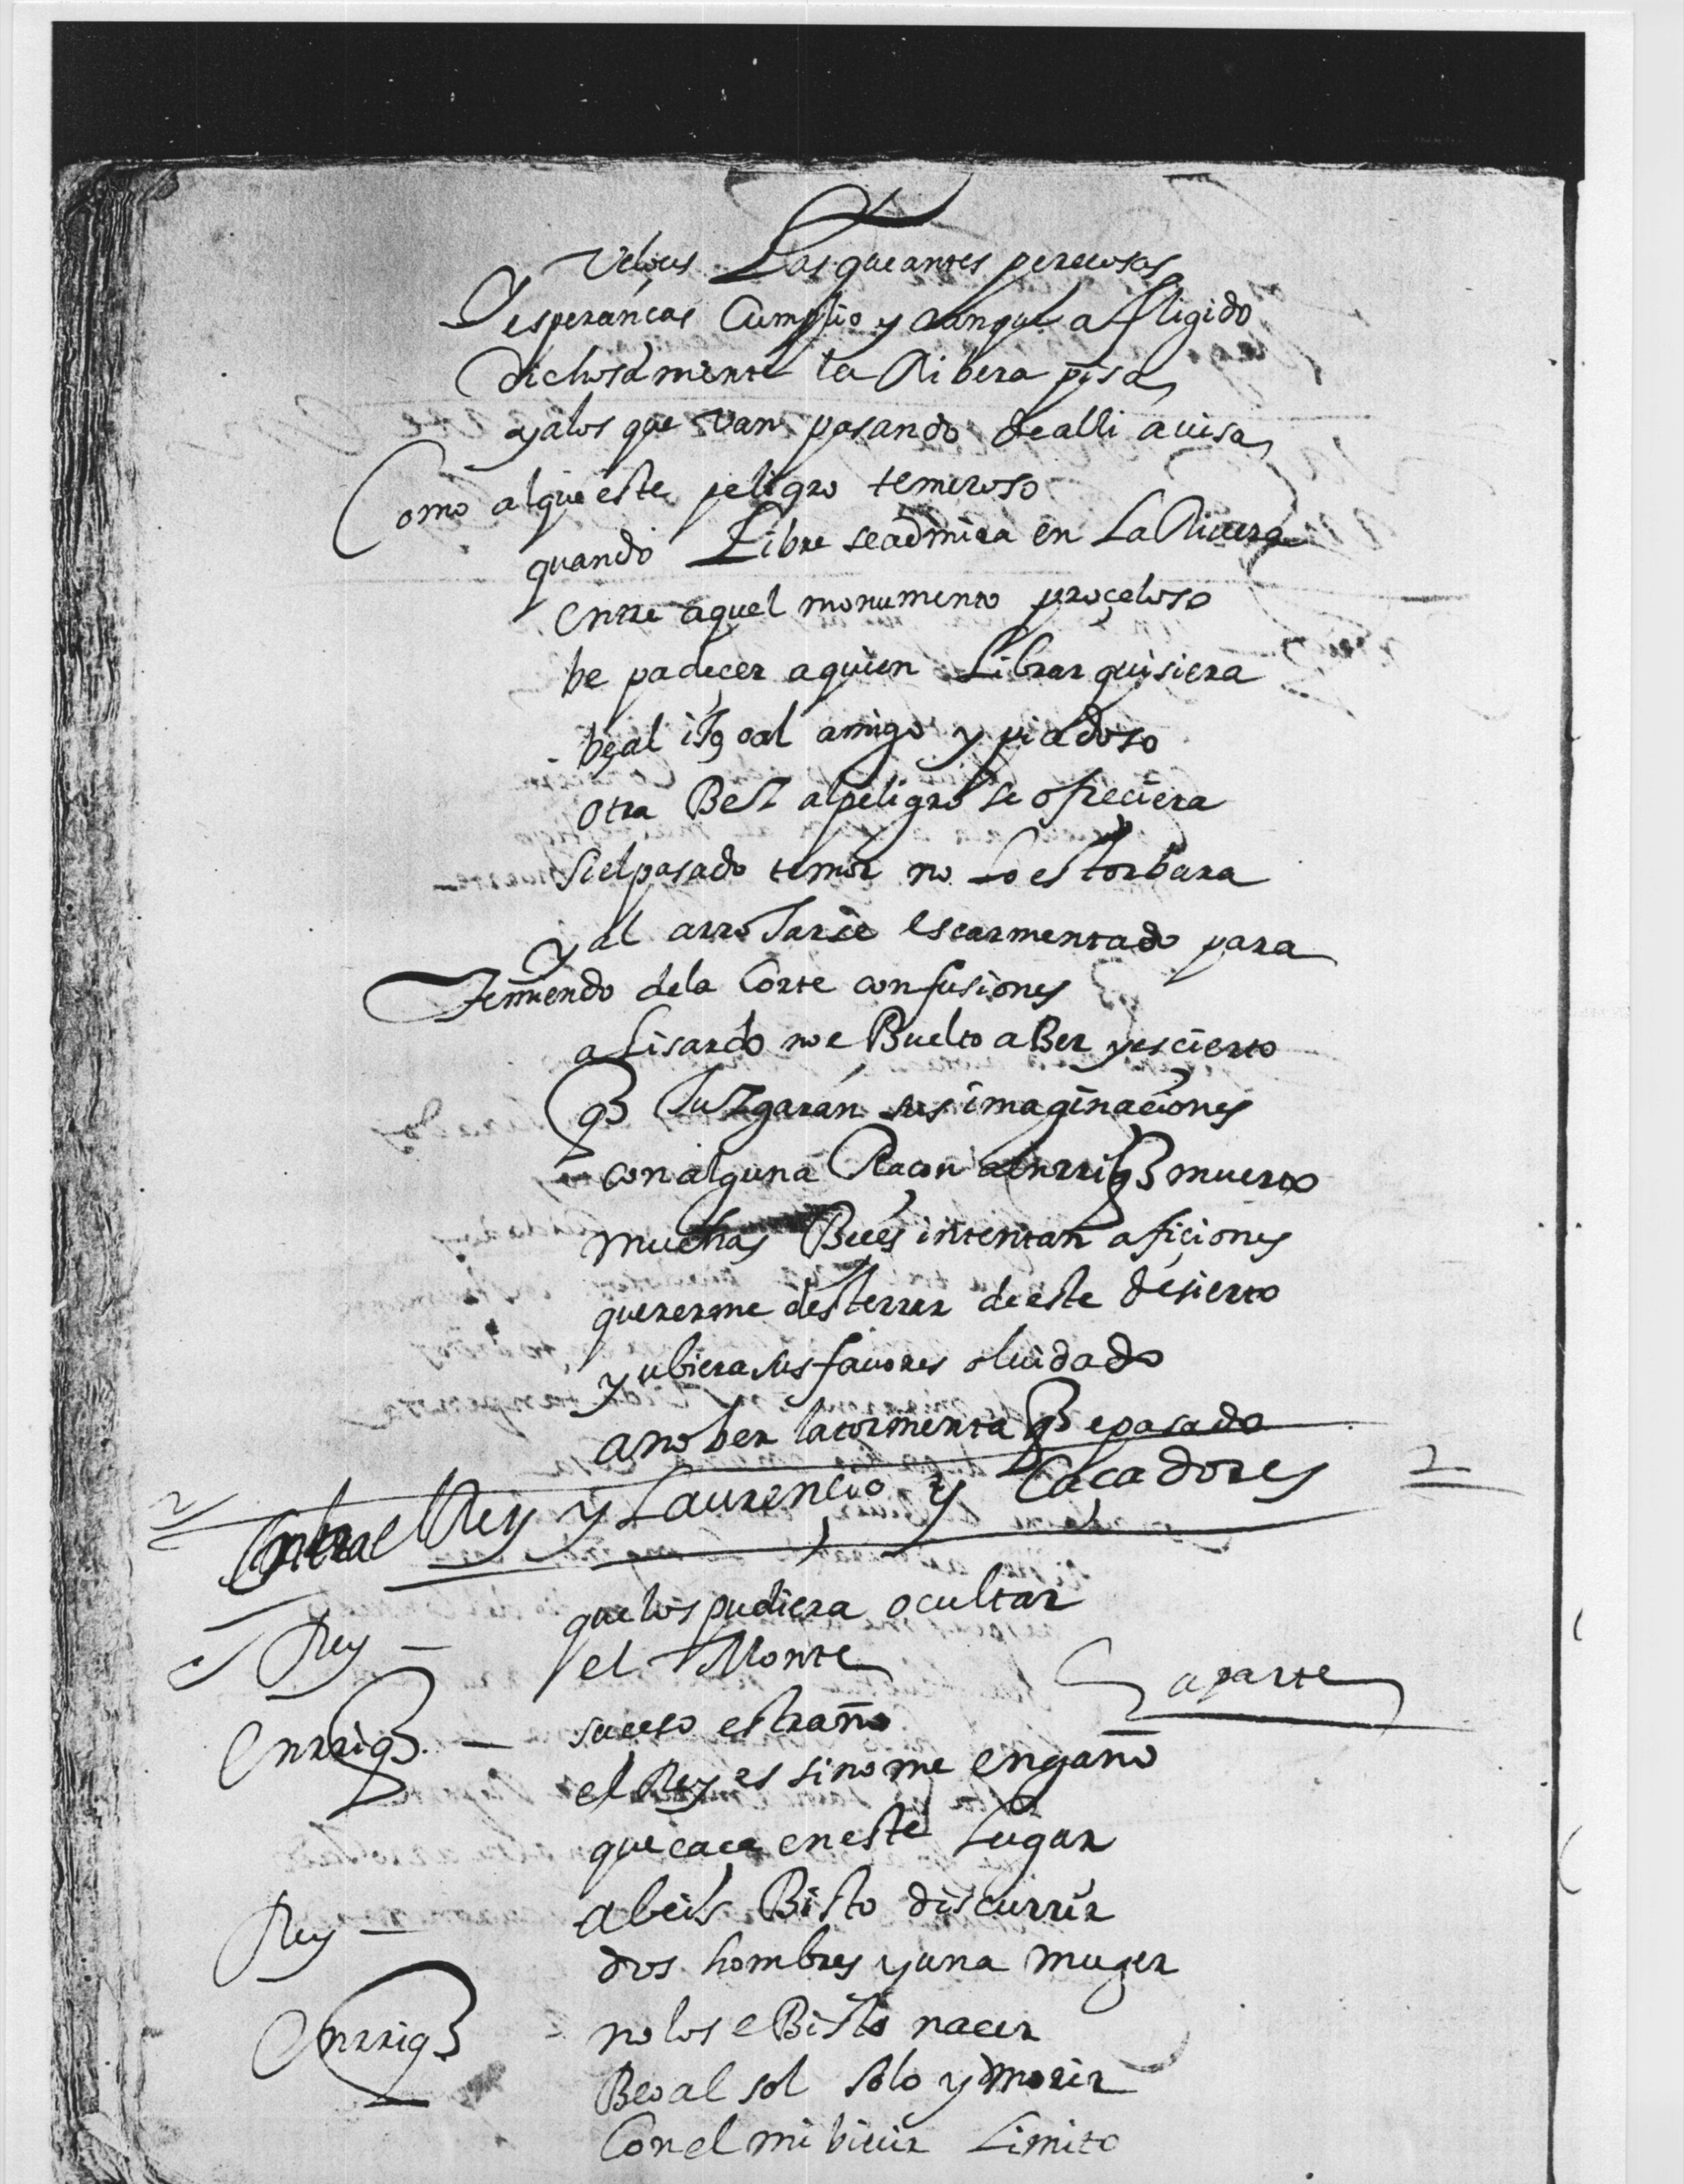 Veloçes Las que antes pereçosas
esperanças Cumplio y aunque afligido
dichosamente la Ribera pisa
y alos que Van pasando de alli auisa
Como alque este peligro temeroso
quando Libre se admira en La Riuera
entre aquel monumento proçeloso
be padeçer aquien Librar quisiera
be al amigo y piadoso
otra Besz alpeligro se ofreciera
si el pasado temor no Lo estorbara
y al arroJarse escarmentado para
Temiendo dela Corte confusiones
a Lisardo no e Buelto a Ber y es cierto
q3 Juzgarán sus imaginaciones
con alguna Raçon a enrriq3 muerto
muchas Beçes intentan afiçiones
quererme desterrar de este desierto
y ubiera sus fauores oluidado
a no ber la tormenta q3 e pasado
Entra el Rey y Laurençio y Caçadores
que los pudiera ocultar
Rey — el Monte
aparte
Enrriq3. — suceso estraño
el Rey es sino me engaño
que caça en este Lugar
Rey — abeis Bisto discurrir
dos hombres y una muger
Enrriq3 - no los e Bisto nacer
Beo al sol solo y morir
Con el mi biuir Limito